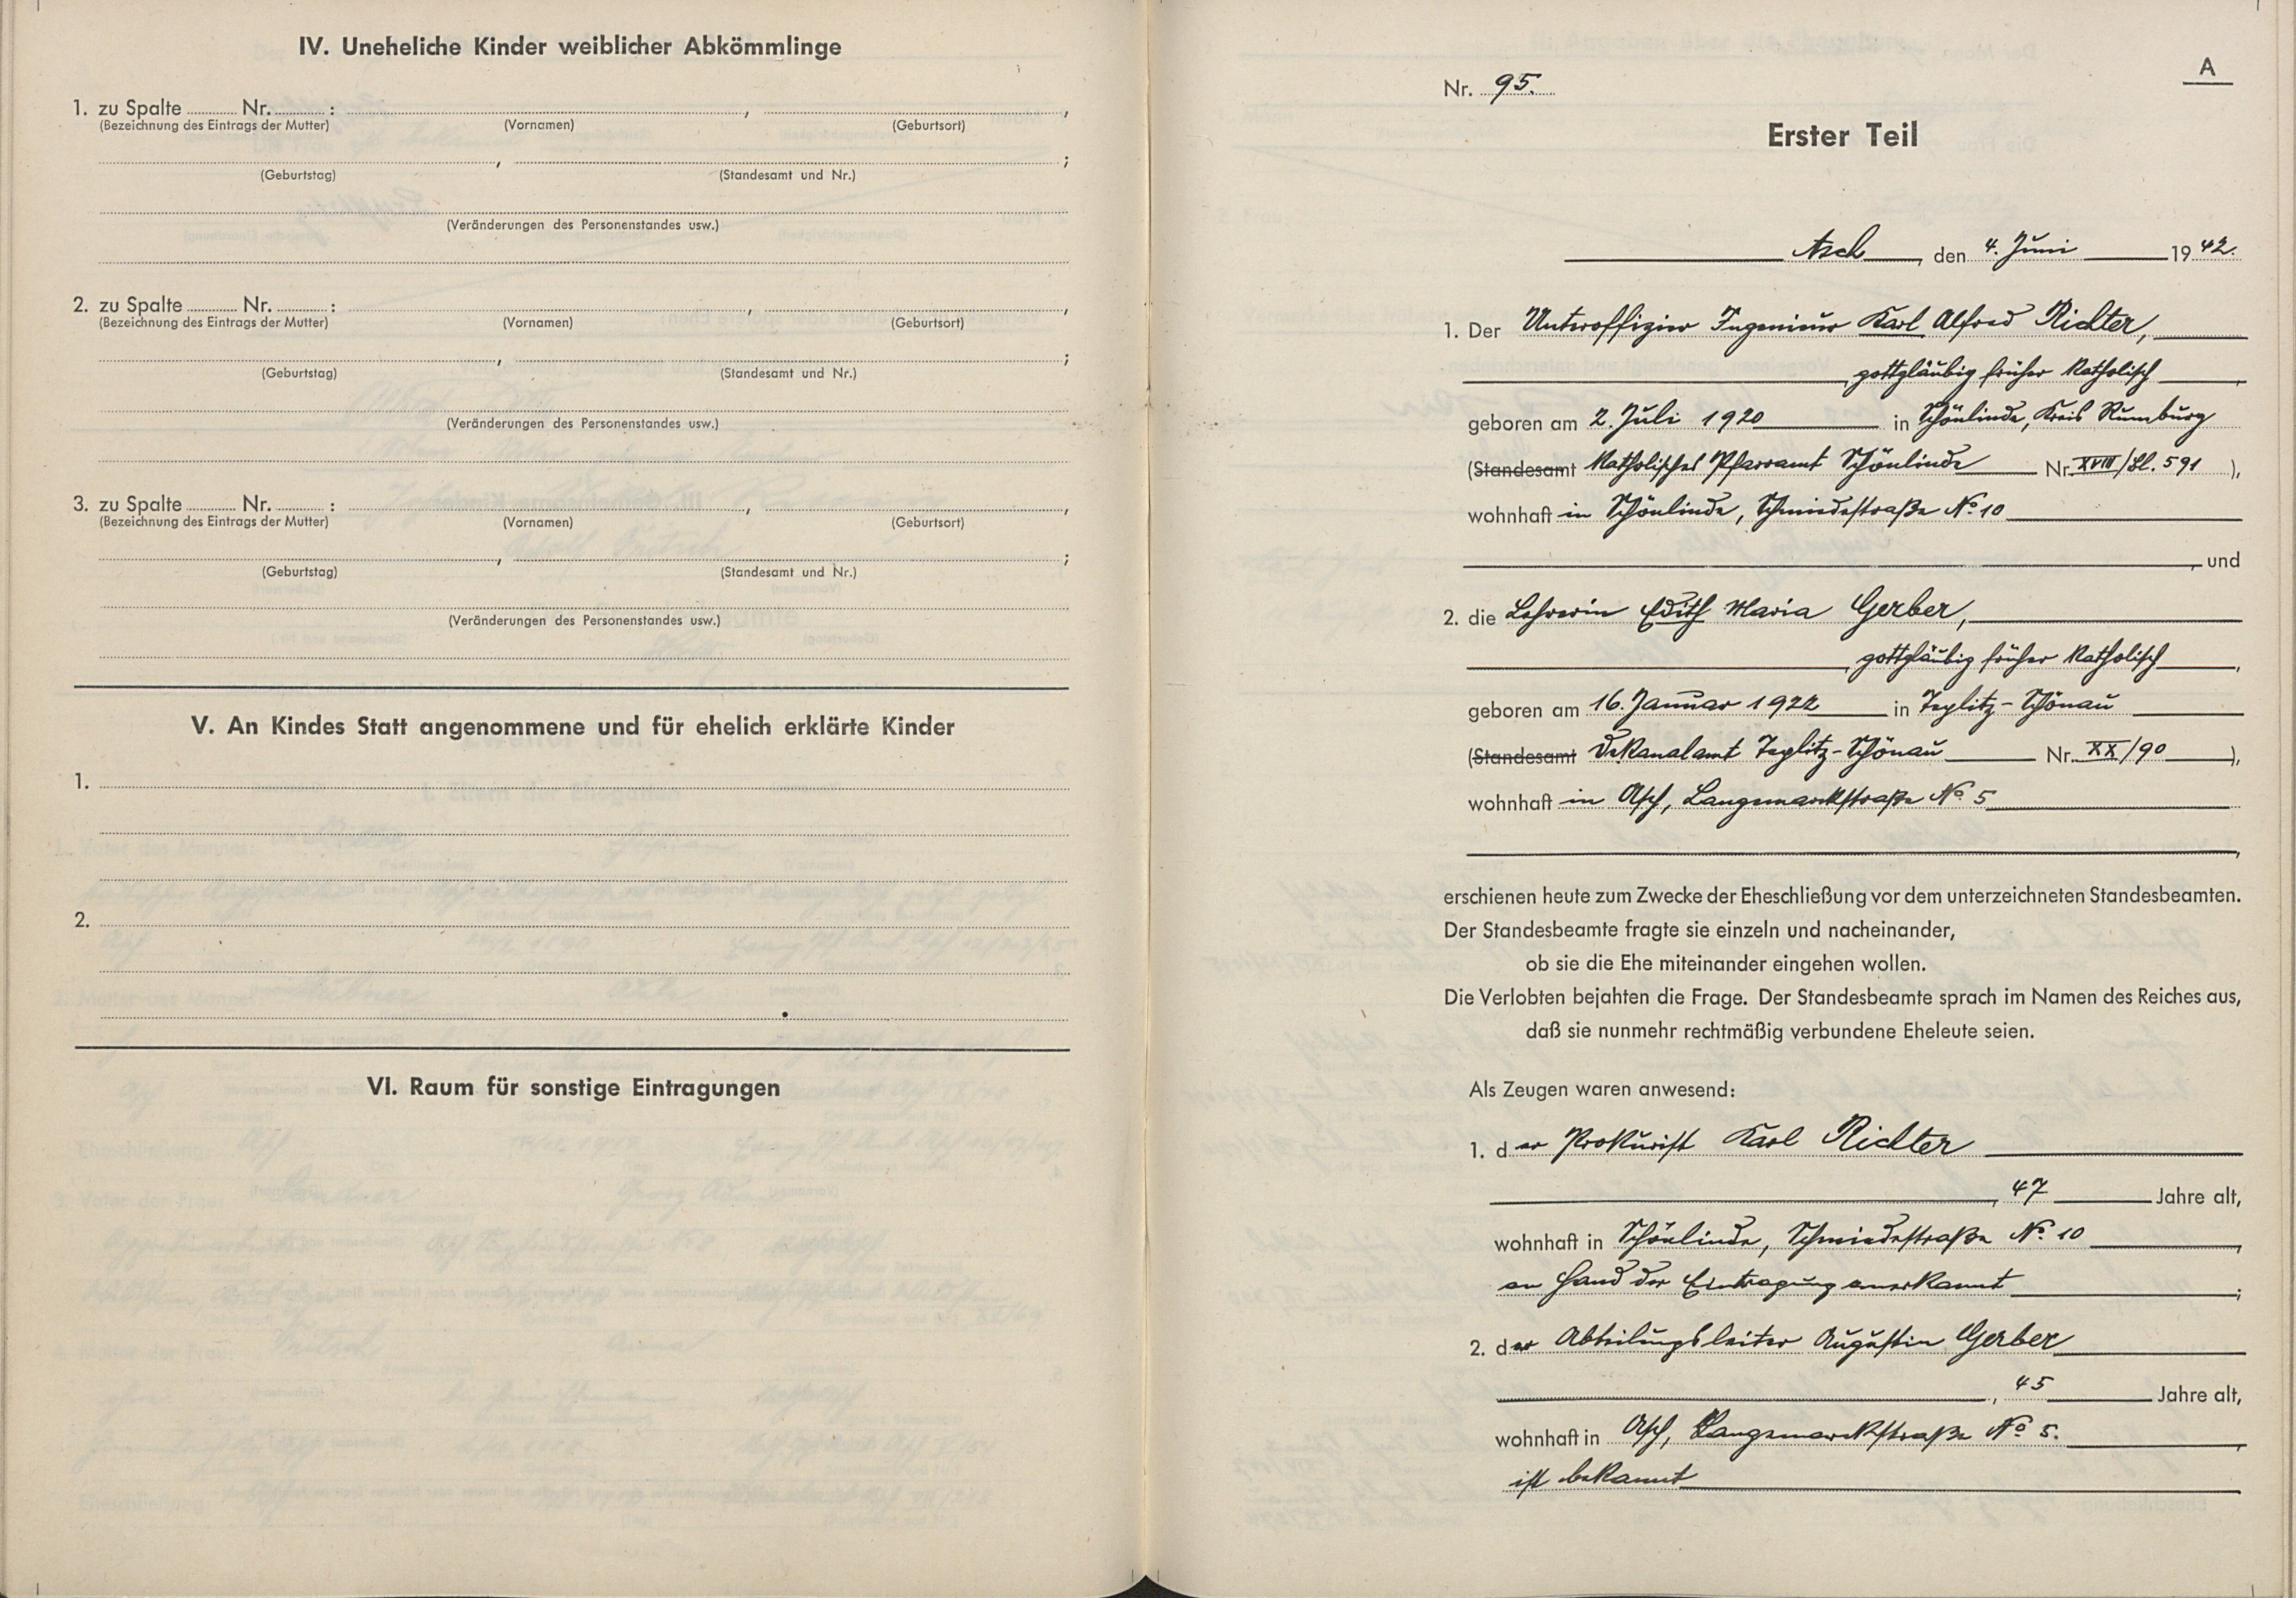 IV. Uneheliche Kinder weiblicher Abkömmlinge
1. zu Spalte ........ Nr. ........ : , ,
(Bezeichnung des Eintrags der Mutter) (Vornamen) (Geburtsort)
, ;
(Geburtstag) (Standesamt und Nr.)
(Veränderungen des Personenstandes usw.)
2. zu Spalte ........ Nr. ........ : , ,
(Bezeichnung des Eintrags der Mutter) (Vornamen) (Geburtsort)
, ;
(Geburtstag) (Standesamt und Nr.)
(Veränderungen des Personenstandes usw.)
3. zu Spalte ........ Nr. ........ : , ,
(Bezeichnung des Eintrags der Mutter) (Vornamen) (Geburtsort)
, ;
(Geburtstag) (Standesamt und Nr.)
(Veränderungen des Personenstandes usw.)
V. An Kindes Statt angenommene und für ehelich erklärte Kinder
1.
2.
VI. Raum für sonstige Eintragungen
A
Nr. 95.
Erster Teil
Asch, den 4. Juni 1942.
1. Der Unteroffizier Ingenieur Karl Alfred Richter,
gottgläubig früher katholisch,
geboren am 2. Juli 1920 in Schönlinde, Kreis Rumburg
(Standesamt Katholisches Pfarramt Schönlinde Nr. XVIII/Bl. 591),
wohnhaft in Schönlinde, Schmiedestraße No 10
, und
2. die Lehrerin Edith Maria Gerber,
gottgläubig früher katholisch,
geboren am 16. Januar 1922 in Teplitz-Schönau
(Standesamt Dekanalamt Teplitz-Schönau Nr. XX/90),
wohnhaft in Asch, Langemarckstraße No 5
,
erschienen heute zum Zwecke der Eheschließung vor dem unterzeichneten Standesbeamten.
Der Standesbeamte fragte sie einzeln und nacheinander,
ob sie die Ehe miteinander eingehen wollen.
Die Verlobten bejahten die Frage. Der Standesbeamte sprach im Namen des Reiches aus,
daß sie nunmehr rechtmäßig verbundene Eheleute seien.
Als Zeugen waren anwesend:
1. der Prokurist Karl Richter
, 47 Jahre alt,
wohnhaft in Schönlinde, Schmiedestraße No 10,
an Hand der Eintragung anerkannt;
2. der Abteilungsleiter Augustin Gerber
, 45 Jahre alt,
wohnhaft in Asch, Langemarckstraße No 5.,
ist bekannt